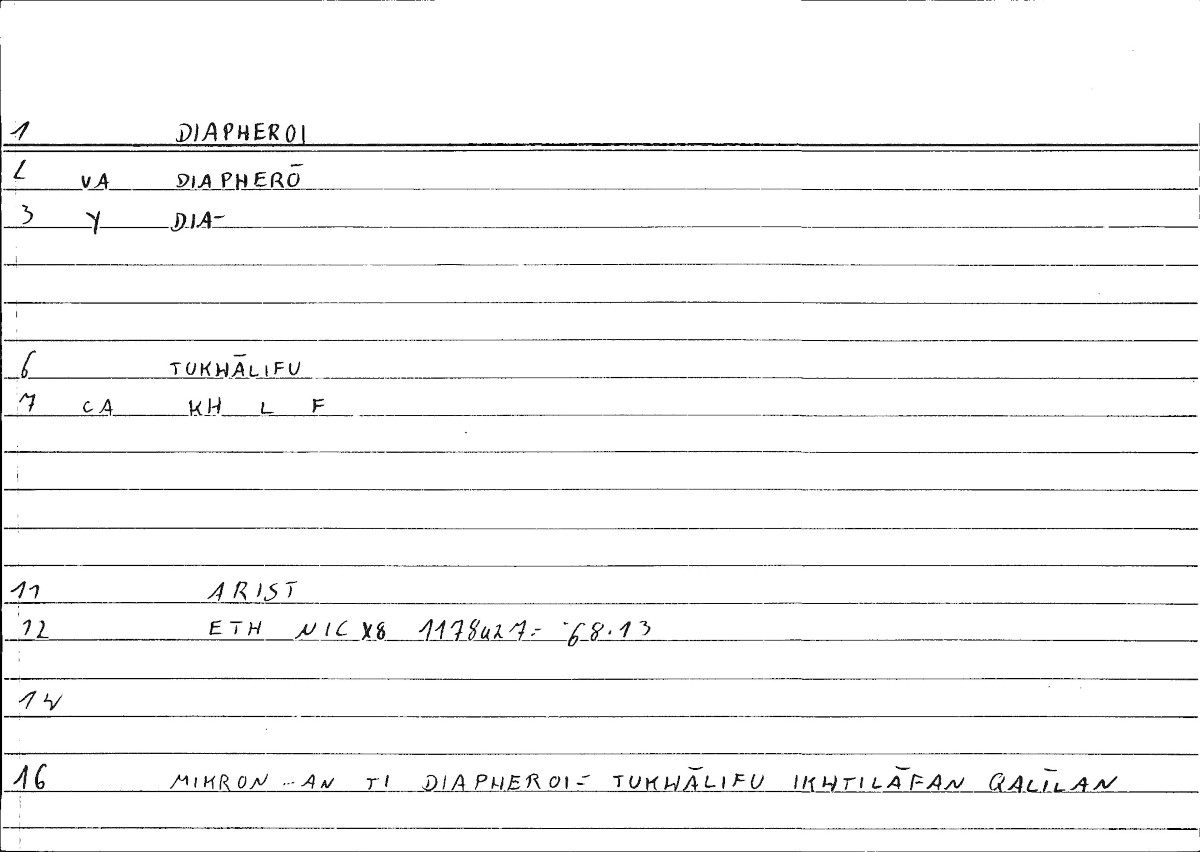 1 DIAPHEROI
2 VA DIAPHERŌ
3 Y DIA-
6 TUKHĀLIFU
7 CA KH L F
11 ARIST
12 ETH NIC X8 1178a27= 568.13
14
16 MIKRON ... AN TI DIAPHEROI= TUKHĀLIFU IKHTILĀFAN QALĪLAN